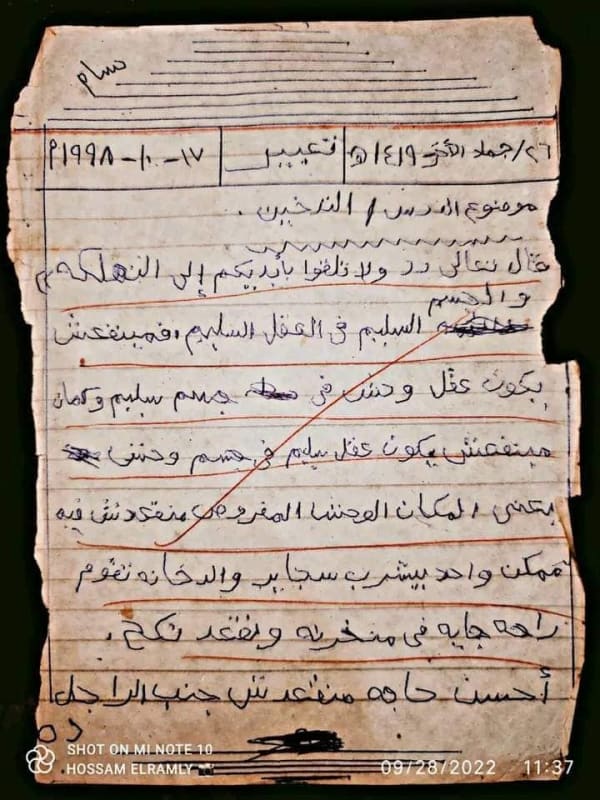 حسام
٢٦/جماد الأخر ١٤١٩ھ تعبير ١٧-١٠-١٩٩٨م
موضوع الدرس / التدخين .
قال تعالى (( ولا تلقوا بأيديكم إلى التهلكه ))
والجسم
السليم فى العقل السليم، فمينفعش
يكون عقل وحش فى جسم سليم وكمان
مينفعش يكون عقل سليم فى جسم وحش
يعنى المكان الوحش المفروض منقعدش فيه
ممكن واحد بيشرب سجاير والدخانه تقوم
راحه جايه فى منخرنه ونقعد نكح .
أحسن حاجه منقعدش جنب الراجل
ده
SHOT ON MI NOTE 10
HOSSAM ELRAMLY
09/28/2022 11:37